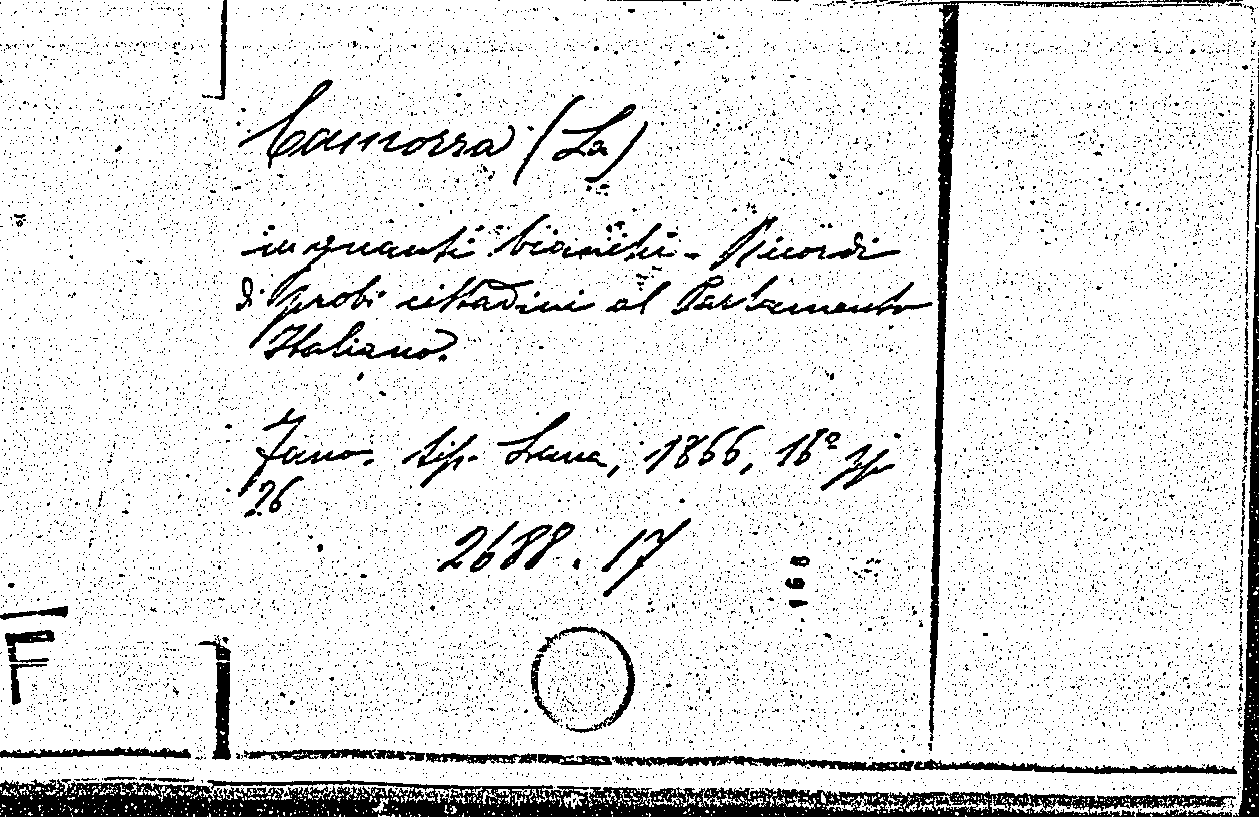 Camorra (La)
in guanti bianchi - Ricordi
di probi cittadini al Parlamento
Italiano.
Fano. tip. Lana, 1866, 16º pp
26
2688. 17
168
F